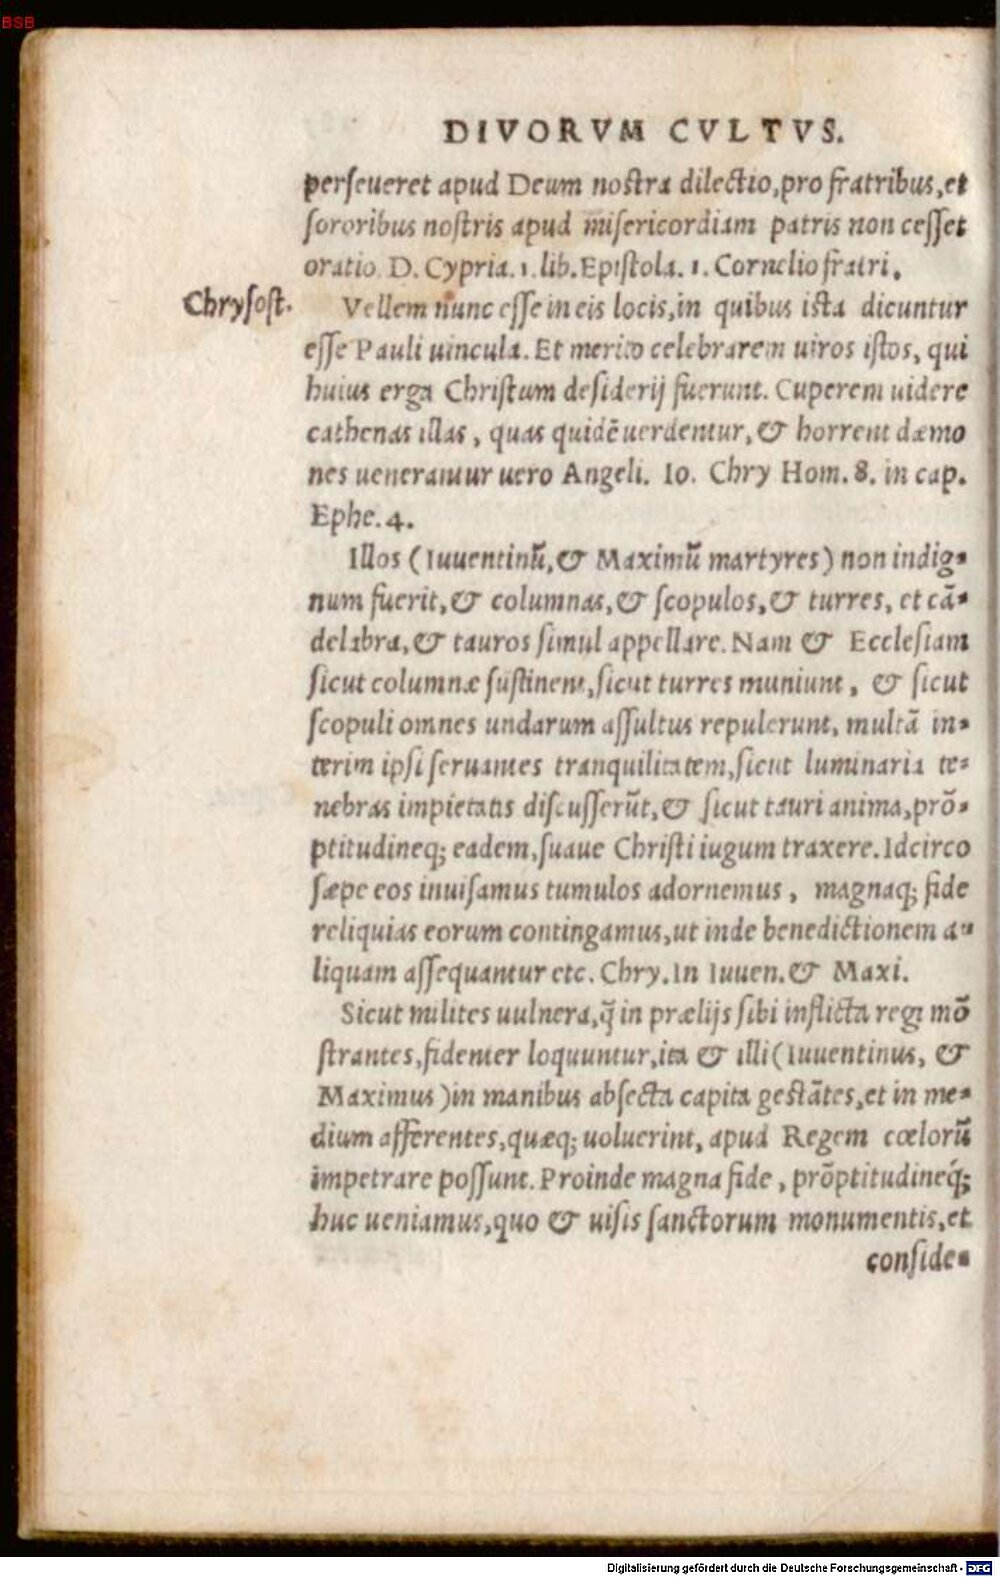 BSB
DIVORVM CVLTVS.
perſeueret apud Deum noſtra dilectio, pro fratribus, et
ſororibus noſtris apud miſericordiam patris non ceſſet
oratio. D. Cypria. 1. lib. Epiſtola. 1. Cornelio fratri.
Chryſoſt.
Vellem nunc eſſe in eis locis, in quibus iſta dicuntur
eſſe Pauli uincula. Et merito celebrarem uiros iſtos, qui
huius erga Chriſtum deſiderij fuerunt. Cuperem uidere
cathenas illas, quas quidē uerdentur, & horrent dæmo
nes uenerantur uero Angeli. Io. Chry Hom. 8. in cap.
Ephe. 4.
Illos (Iuuentinū, & Maximū martyres) non indig-
num fuerit, & columnas, & ſcopulos, & turres, et cā-
delabra, & tauros ſimul appellare. Nam & Eccleſiam
ſicut columnæ ſuſtinent, ſicut turres muniunt, & ſicut
ſcopuli omnes undarum aſſultus repulerunt, multā in-
terim ipſi ſeruantes tranquilitatem, ſicut luminaria te-
nebras impietatis diſcuſſerūt, & ſicut tauri anima, prō-
ptitudineq; eadem, ſuaue Chriſti iugum traxere. Idcirco
ſæpe eos inuiſamus tumulos adornemus, magnaq; fide
reliquias eorum contingamus, ut inde benedictionem a-
liquam aſſequantur etc. Chry. In Iuuen. & Maxi.
Sicut milites uulnera, q̄ in prælijs ſibi inflicta regi mō
ſtrantes, fidenter loquuntur, ita & illi (Iuuentinus, &
Maximus) in manibus abſecta capita geſtātes, et in me-
dium afferentes, quæq; uoluerint, apud Regem cœlorū
impetrare poſſunt. Proinde magna fide, prōptitudineq́;
huc ueniamus, quo & uiſis ſanctorum monumentis, et
conſide-
Digitalisierung gefördert durch die Deutsche Forschungsgemeinschaft - DFG